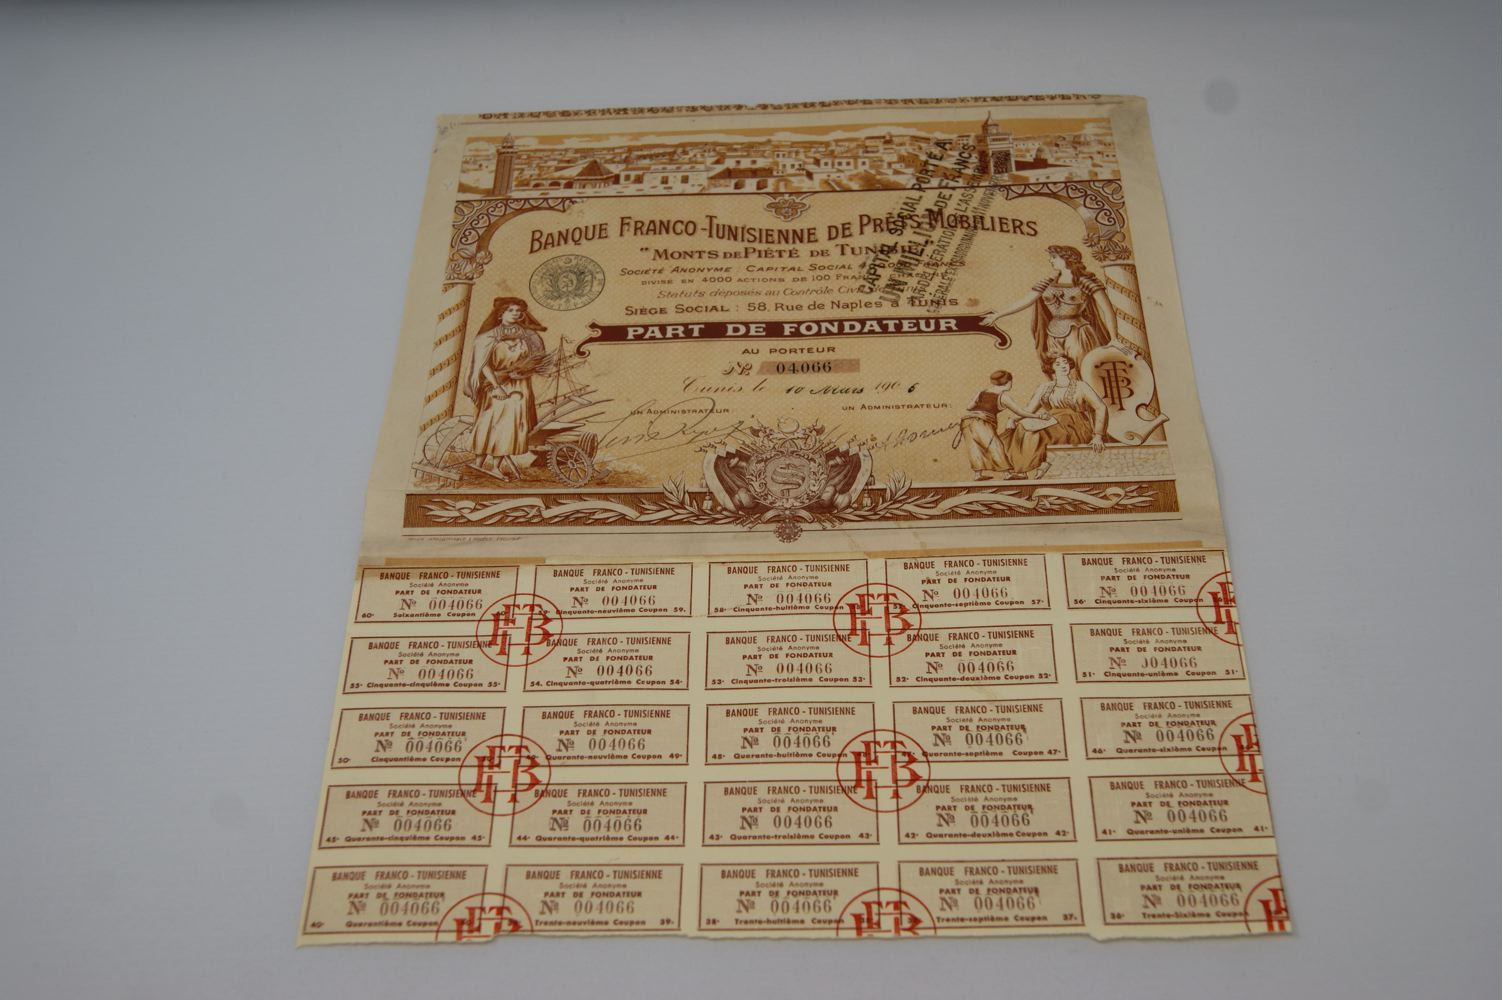 BANQUE FRANCO-TUNISIENNE DE PRÊTS MOBILIERS
"MONTS DE PIÉTÉ DE
SOCIÉTÉ ANONYME: CAPITAL SOCIAL
DIVISÉ EN 4000 ACTIONS DE 100
Statuts déposés au Contrôle
SIÈGE SOCIAL: 58, Rue de Naples à TUNIS
CAPITAL SOCIAL PORTÉ A
UN MILLION DE FRANCS
PART DE FONDATEUR
AU PORTEUR
№ 04.066
Tunis le 10 Mars 1906
UN ADMINISTRATEUR: UN ADMINISTRATEUR:
FTB
BANQUE FRANCO-TUNISIENNE BANQUE FRANCO-TUNISIENNE BANQUE FRANCO-TUNISIENNE BANQUE FRANCO-TUNISIENNE BANQUE FRANCO-TUNISIENNE
Société Anonyme Société Anonyme Société Anonyme Société Anonyme Société Anonyme
PART DE FONDATEUR PART DE FONDATEUR PART DE FONDATEUR PART DE FONDATEUR PART DE FONDATEUR
№ 004066 № 004066 № 004066 № 004066 № 004066
60e Soixantième Coupon Cinquante-neuvième Coupon 59e 58e Cinquante-huitième Coupon Cinquante-septième Coupon 57e 56e Cinquante-sixième Coupon
BANQUE FRANCO-TUNISIENNE BANQUE FRANCO-TUNISIENNE BANQUE FRANCO-TUNISIENNE BANQUE FRANCO-TUNISIENNE BANQUE FRANCO-TUNISIENNE
Société Anonyme Société Anonyme Société Anonyme Société Anonyme Société Anonyme
PART DE FONDATEUR PART DE FONDATEUR PART DE FONDATEUR PART DE FONDATEUR PART DE FONDATEUR
№ 004066 № 004066 № 004066 № 004066 № 004066
55e Cinquante-cinquième Coupon 55e 54e Cinquante-quatrième Coupon 54e 53e Cinquante-troisième Coupon 53e 52e Cinquante-deuxième Coupon 52e 51e Cinquante-unième Coupon 51e
BANQUE FRANCO-TUNISIENNE BANQUE FRANCO-TUNISIENNE BANQUE FRANCO-TUNISIENNE BANQUE FRANCO-TUNISIENNE BANQUE FRANCO-TUNISIENNE
Société Anonyme Société Anonyme Société Anonyme Société Anonyme Société Anonyme
PART DE FONDATEUR PART DE FONDATEUR PART DE FONDATEUR PART DE FONDATEUR PART DE FONDATEUR
№ 004066 № 004066 № 004066 № 004066 № 004066
50e Cinquantième Coupon Quarante-neuvième Coupon 49e 48e Quarante-huitième Coupon Quarante-septième Coupon 47e 46e Quarante-sixième Coupon
BANQUE FRANCO-TUNISIENNE BANQUE FRANCO-TUNISIENNE BANQUE FRANCO-TUNISIENNE BANQUE FRANCO-TUNISIENNE BANQUE FRANCO-TUNISIENNE
Société Anonyme Société Anonyme Société Anonyme Société Anonyme Société Anonyme
PART DE FONDATEUR PART DE FONDATEUR PART DE FONDATEUR PART DE FONDATEUR PART DE FONDATEUR
№ 004066 № 004066 № 004066 № 004066 № 004066
45e Quarante-cinquième Coupon 45e 44e Quarante-quatrième Coupon 44e 43e Quarante-troisième Coupon 43e 42e Quarante-deuxième Coupon 42e 41e Quarante-unième Coupon 41e
BANQUE FRANCO-TUNISIENNE BANQUE FRANCO-TUNISIENNE BANQUE FRANCO-TUNISIENNE BANQUE FRANCO-TUNISIENNE BANQUE FRANCO-TUNISIENNE
Société Anonyme Société Anonyme Société Anonyme Société Anonyme Société Anonyme
PART DE FONDATEUR PART DE FONDATEUR PART DE FONDATEUR PART DE FONDATEUR PART DE FONDATEUR
№ 004066 № 004066 № 004066 № 004066 № 004066
40e Quarantième Coupon Trente-neuvième Coupon 39e 38e Trente-huitième Coupon Trente-septième Coupon 37e 36e Trente-Sixième Coupon